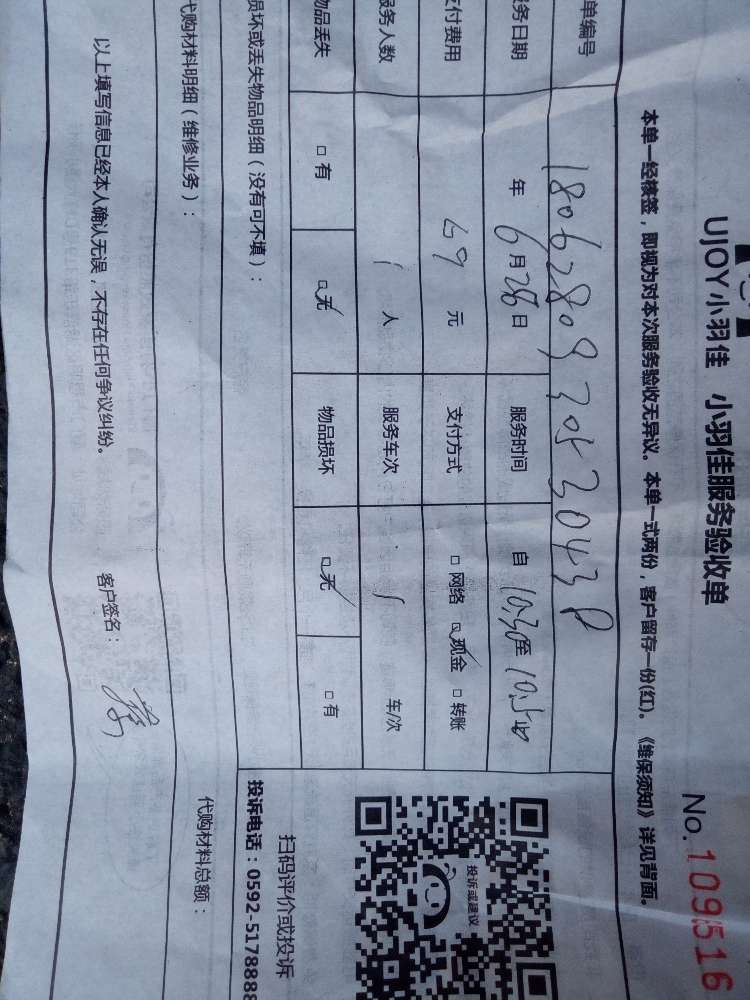 UJOY小羽佳 小羽佳服务验收单
No. 109516
本单一经核签，即视为对本次服务验收无异议。本单一式两份，客户留存一份(红)。《维保须知》详见背面。
单编号 180628093053043P
务日期 年 6月28日 服务时间 自 10:30至
支付费用 69 元 支付方式 □网络 ☑现金 □转账
务人数 1 人 服务车次 1 车/次
物品丢失 □有 ☑无 物品损坏 ☑无 □有
投诉或建议
损坏或丢失物品明细（没有可不填）：
扫码评价或投诉
投诉电话：0592-5178888
代购材料明细（维修业务）：
代购材料总额：
以上填写信息已经本人确认无误，不存在任何争议纠纷。 客户签名：